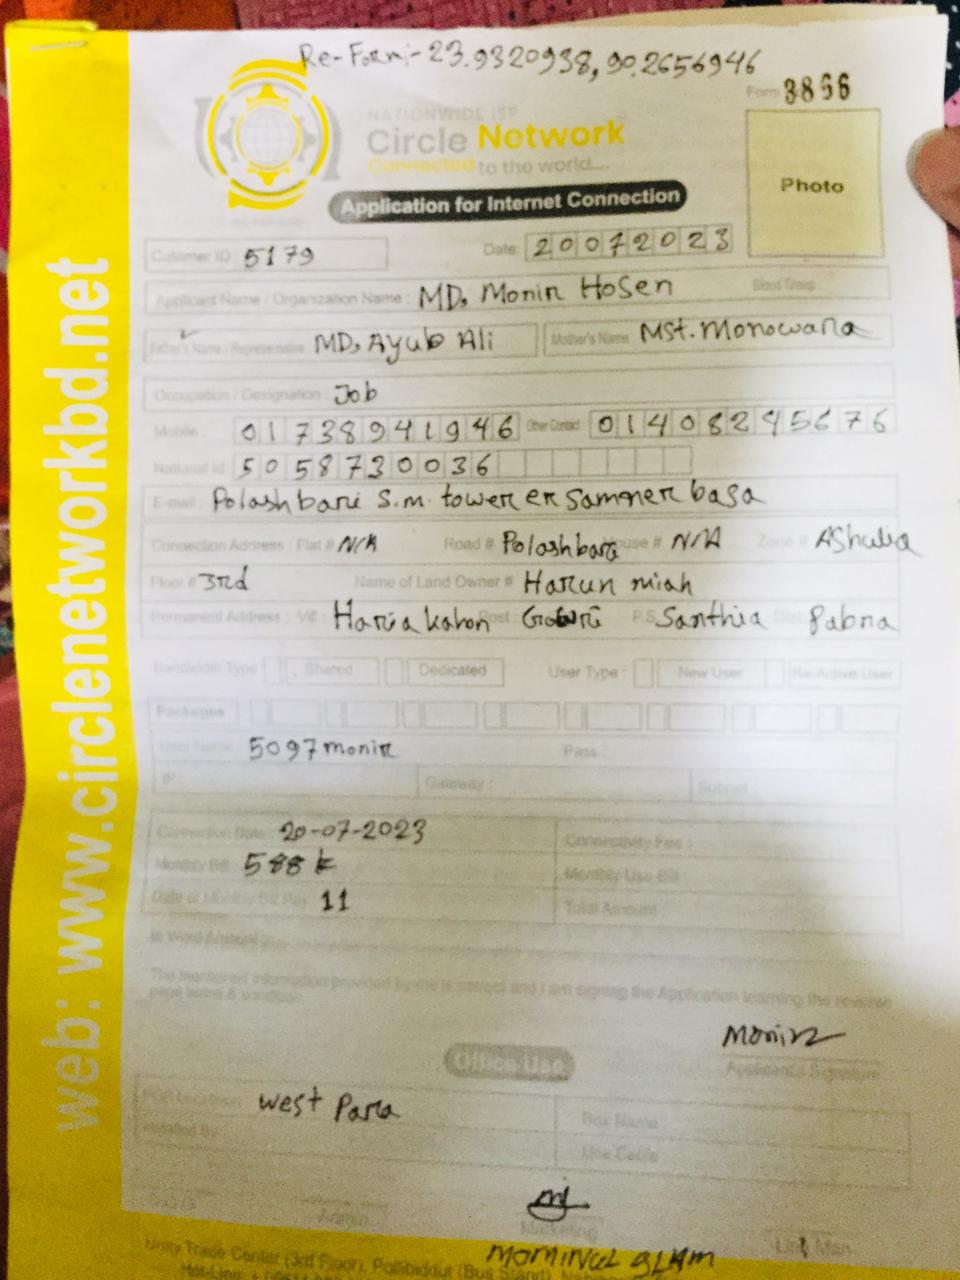 Re-Form:- 23.9320938, 90.2656946
Form 3866
NATIONWIDE ISP
Circle Network
Connected to the world....
Photo
Application for Internet Connection
Cutomer ID 5179 Date: 20072023
Applicant Name / Organization Name : MD. Monir Hosen Blood Group :
Father's Name / Representative MD. Ayub Ali Mother's Name Mst. Monowara
Occupation / Designation : Job
Mobile : 01738941946 Other Contact : 01408245676
National Id: 5058730036
E-mail : Polashbari S.m. tower er samner basa
Connection Address : Flat # N/A Road # Polashbari House # N/A Zone # AShulia
Floor # 3rd Name of Land Owner # Harun miah
Permanent Address : Vill : Haria kahon Post : P.S Santhia Dist Pabna
Bandwidth Type Shared Dedicated User Type : New User Re-Active User
Packages
User Name : 5097monir Pass :
IP : Gateway : Subnet :
Connection Date : 20-07-2023 Connectivity Fee :
Monthly Bill : 588 Monthly Use Bill :
Date of Monthly Bill Pay 11 Total Amount
In Word Amount
The mentioned information provided by me is correct and I am signing the Application learning the reverse
page terms & condition
Monir
Applicant's Signature
Office Use
POP Location : west Para Box Name :
Installed By : Use Cable
Admin Marketing Line Man
MOMINUL ISLAM
Unity Trade Center (3rd Floor), Pallibiddut (Bus Stand),
Hot-Line:
web: www.circlenetworkbd.net